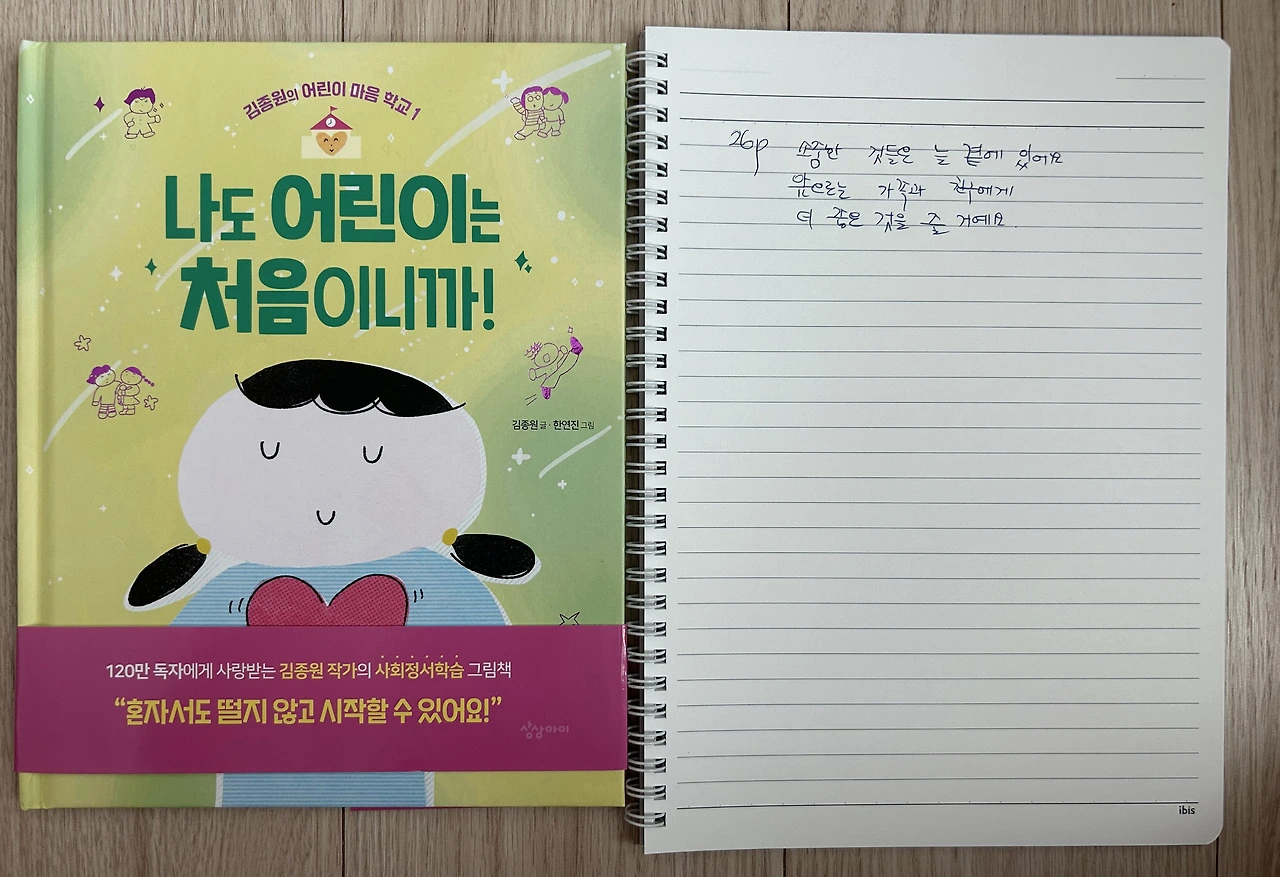 김종원의 어린이 마음 학교 1
나도 어린이는
처음이니까!
김종원 글 · 한연진 그림
120만 독자에게 사랑받는 김종원 작가의 사회정서학습 그림책
“혼자서도 떨지 않고 시작할 수 있어요!”
상상아이
26p 소중한 것들은 늘 곁에 있어요
앞으로는 가족과 친구에게
더 좋은 것을 줄 거예요.
ibis